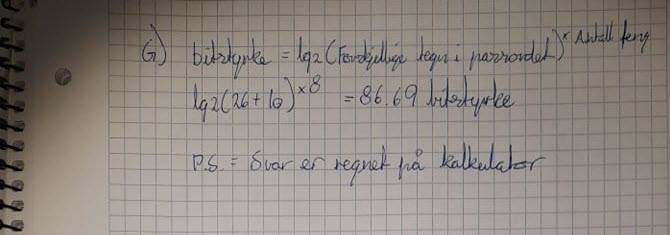 G) bitstyrke = lg2(Forskjellige tegn i passordet)^x Antall tegn
lg2(26+10)^x8 = 86.69 bitstyrke
P.S. = Svar er regnet på kalkulator